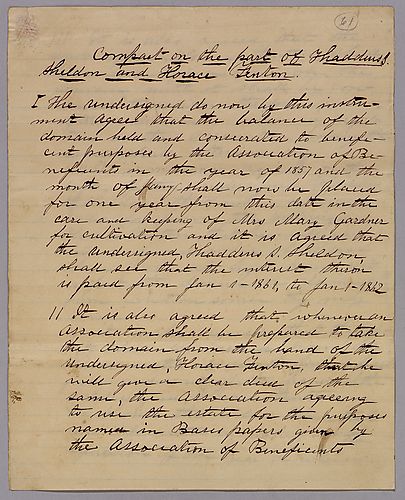 61
Compact on the part of Thaddeus S.
Sheldon and Horace Fenton.
I The undersigned do now by this instru-
ment agree that the balance of the
domain held and consecrated to benefi-
cent purposes by the Association of Be-
neficents in the year of 1857 and the
month of shall now be placed
for one year from this date in the
care and keeping of Mrs Mary Gardner
for cultivation and it is agreed that
the undersigned, Thaddeus S. Sheldon,
shall see that the interest thereon
is paid from Jan 1-1861, to Jan 1-1862
II It is also agreed that whenever an
Association shall be prepared to take
the domain from the hand of the
undersigned, Horace Fenton, that he
will give a clear deed of the
same, the association agreeing
to use the estate for the purposes
named in Basis papers given by
the Association of Beneficents